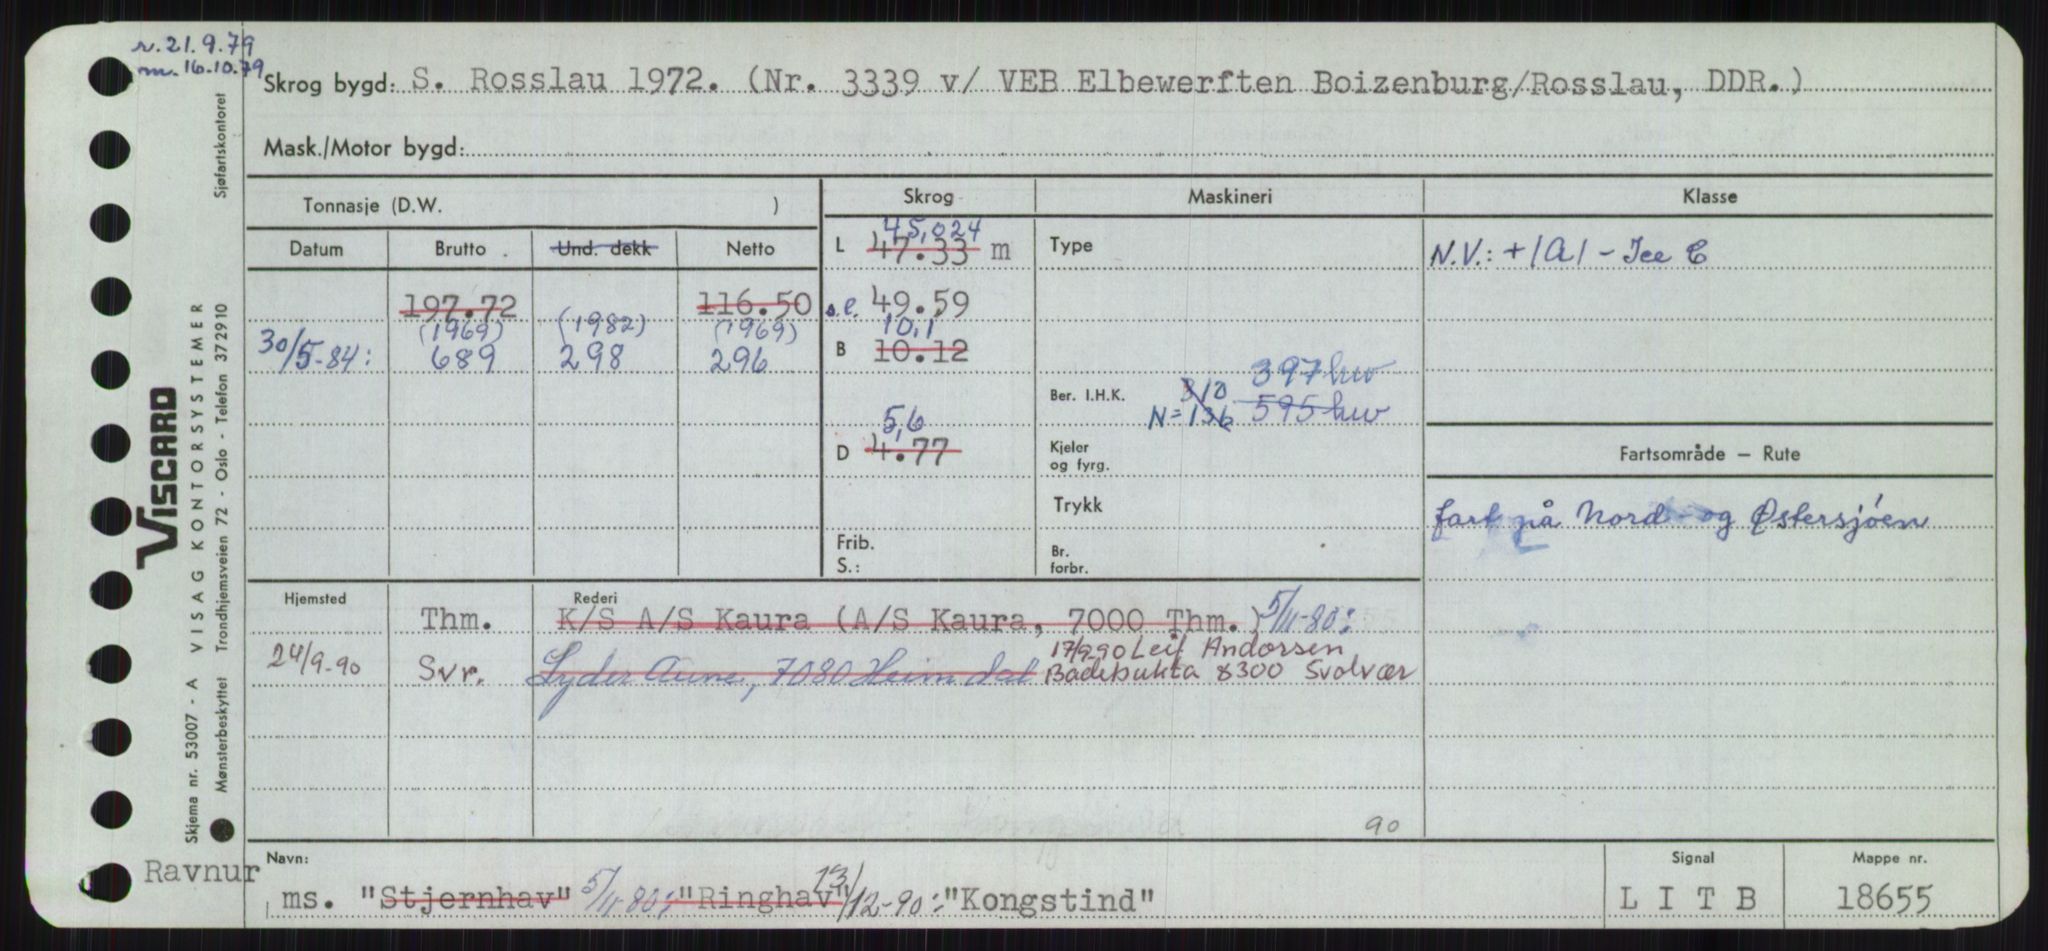 r. 21.9.79
m. 16.10.79
Skrog bygd: S. Rosslau 1972. (Nr. 3339 v/ VEB Elbewerften Boizenburg/Rosslau, DDR.)
Mask./Motor bygd:
Tonnasje (D.W. )
Skrog
Maskineri
Klasse
Datum Brutto Und. dekk Netto
L 45,024
47.33 m
Type
N.V.: +1A1 - Ice C
197.72 116.50
s.l. 49.59
(1969) (1982) (1969)
30/5-84: 689 298 296
10,1
B 10.12
397 hw
Ber. I.H.K. 310
N=136 595 hw
5,6
D 4.77
Kjeler
og fyrg.
Fartsområde – Rute
Trykk
fart på Nord- og Østersjøen
Frib.
S.:
Br.
forbr.
Hjemsted Rederi
Thm. K/S A/S Kaura (A/S Kaura, 7000 Thm.) 5/11-80:
24/9-90 Svr. Lyder Aune, 7080 Heimdal 17/9-90 Leif Andorsen
Badebukta 8300 Svolvær
90
Navn:
Ravnur
ms. "Stjernhav" 5/11-80: "Ringhav" 13/12-90: "Kongstind"
Signal
L I T B
Mappe nr.
18655
Sjøfartskontoret
VISCARD
Skjema nr. 53007 - A VISAG KONTORSYSTEMER
Mønsterbeskyttet Trondhjemsveien 72 - Oslo - Telefon 372910